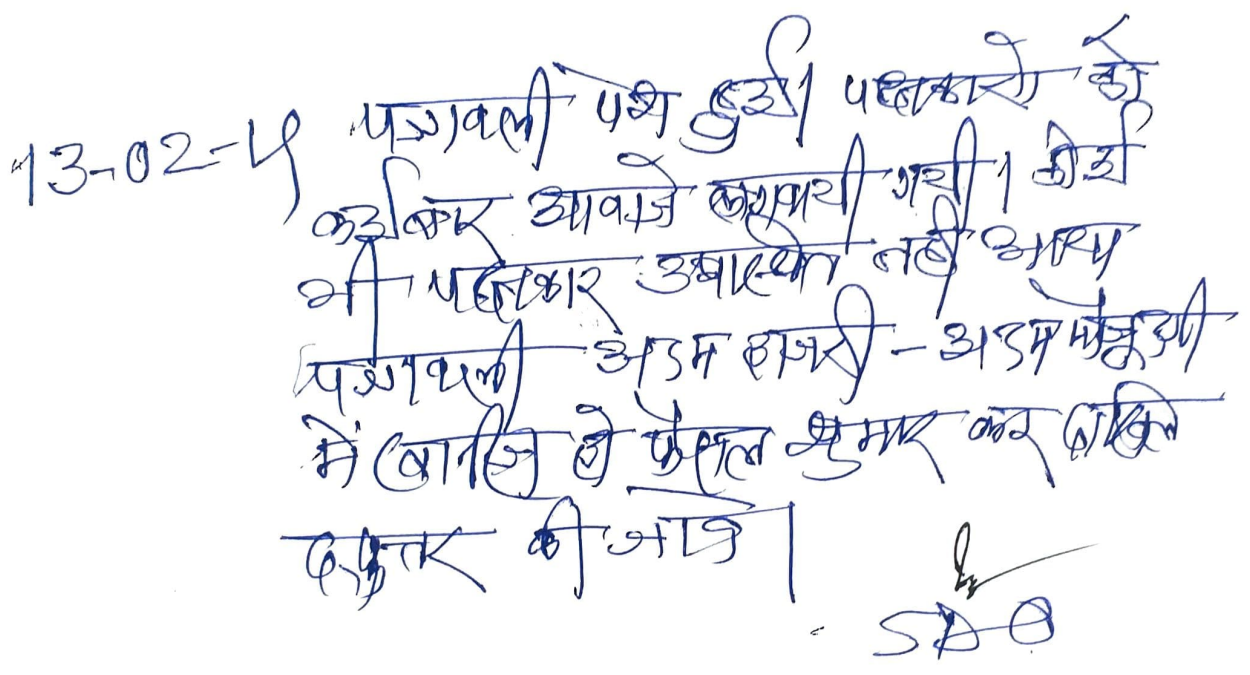 पत्रावली पेश हुई। पक्षकारो को
13-02-
कई बार आवाजे लगवायी गयी। कोई
भी पक्षकार उपास्थित नही आया
पत्रावली अदम हाजरी - अदम मौजूदगी
में खारिज हो फैसल शुमार कर दाखिल
दफ्तर की जावे।
SDO